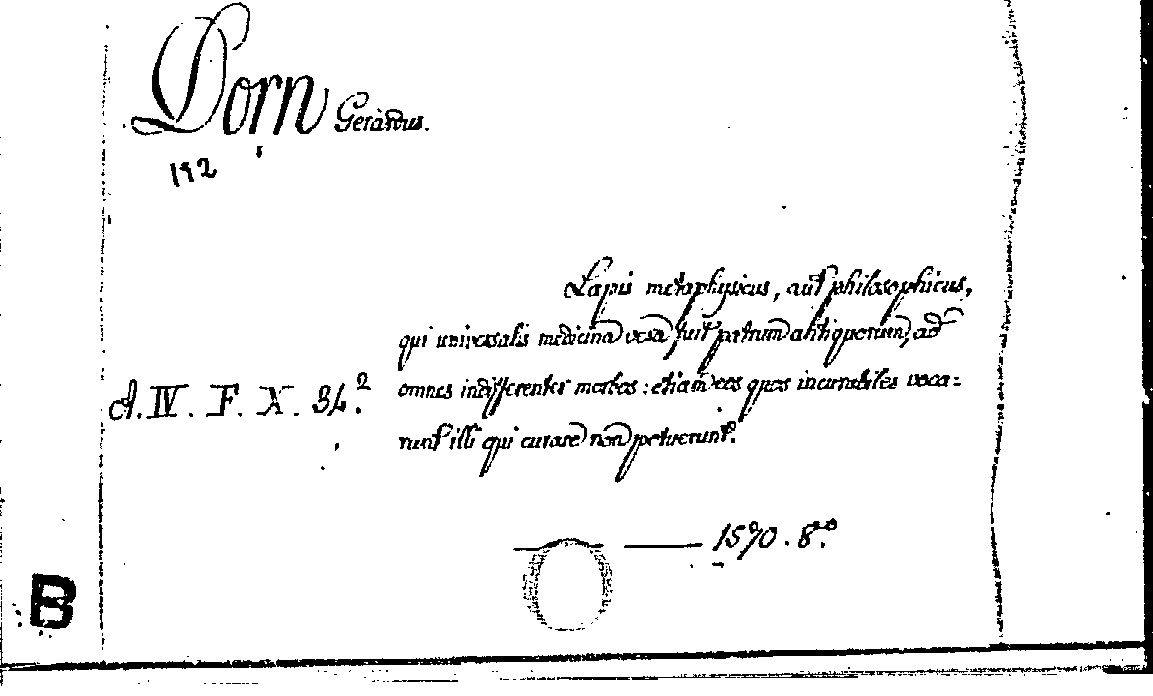 Dorn Gerardus.
192
Lapis metaphysicus, aut philosophicus,
qui universalis medicina vera fuit patrum antiquorum, ad
omnes indifferenter morbos: etiam eos quos incurabiles voca=
A. IV. F. X. 34.2
runt illi qui curare non potuerunt.
1570. 8.vo
B